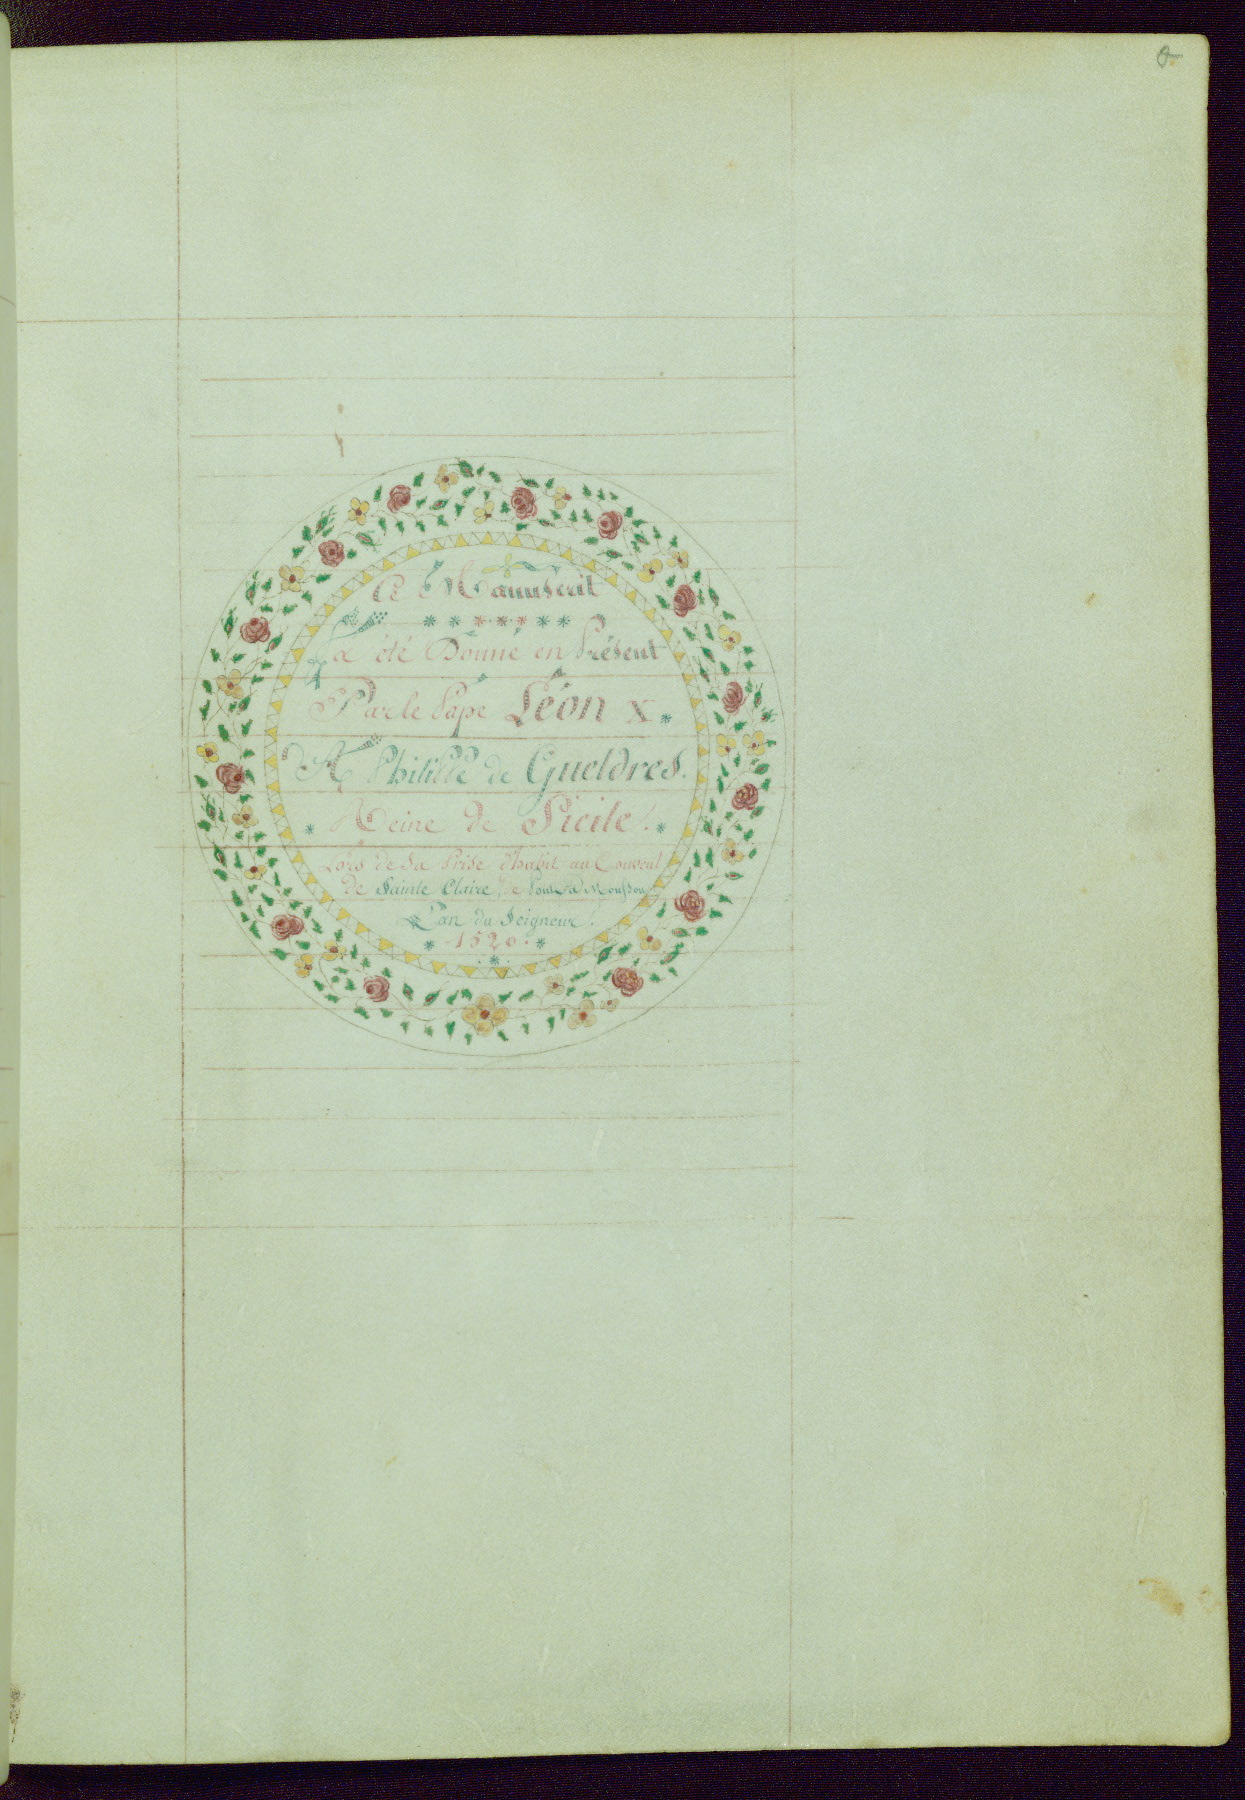 Ce Manuscrit
a été Donné en Présent
Par le Pape Léon X.
A Philippe de Gueldres.
Reine de Sicile.
Lors de Sa Prise d'habit au Couvent
de Sainte Claire, de Pont à Mousson,
L'an du Seigneur.
1520.